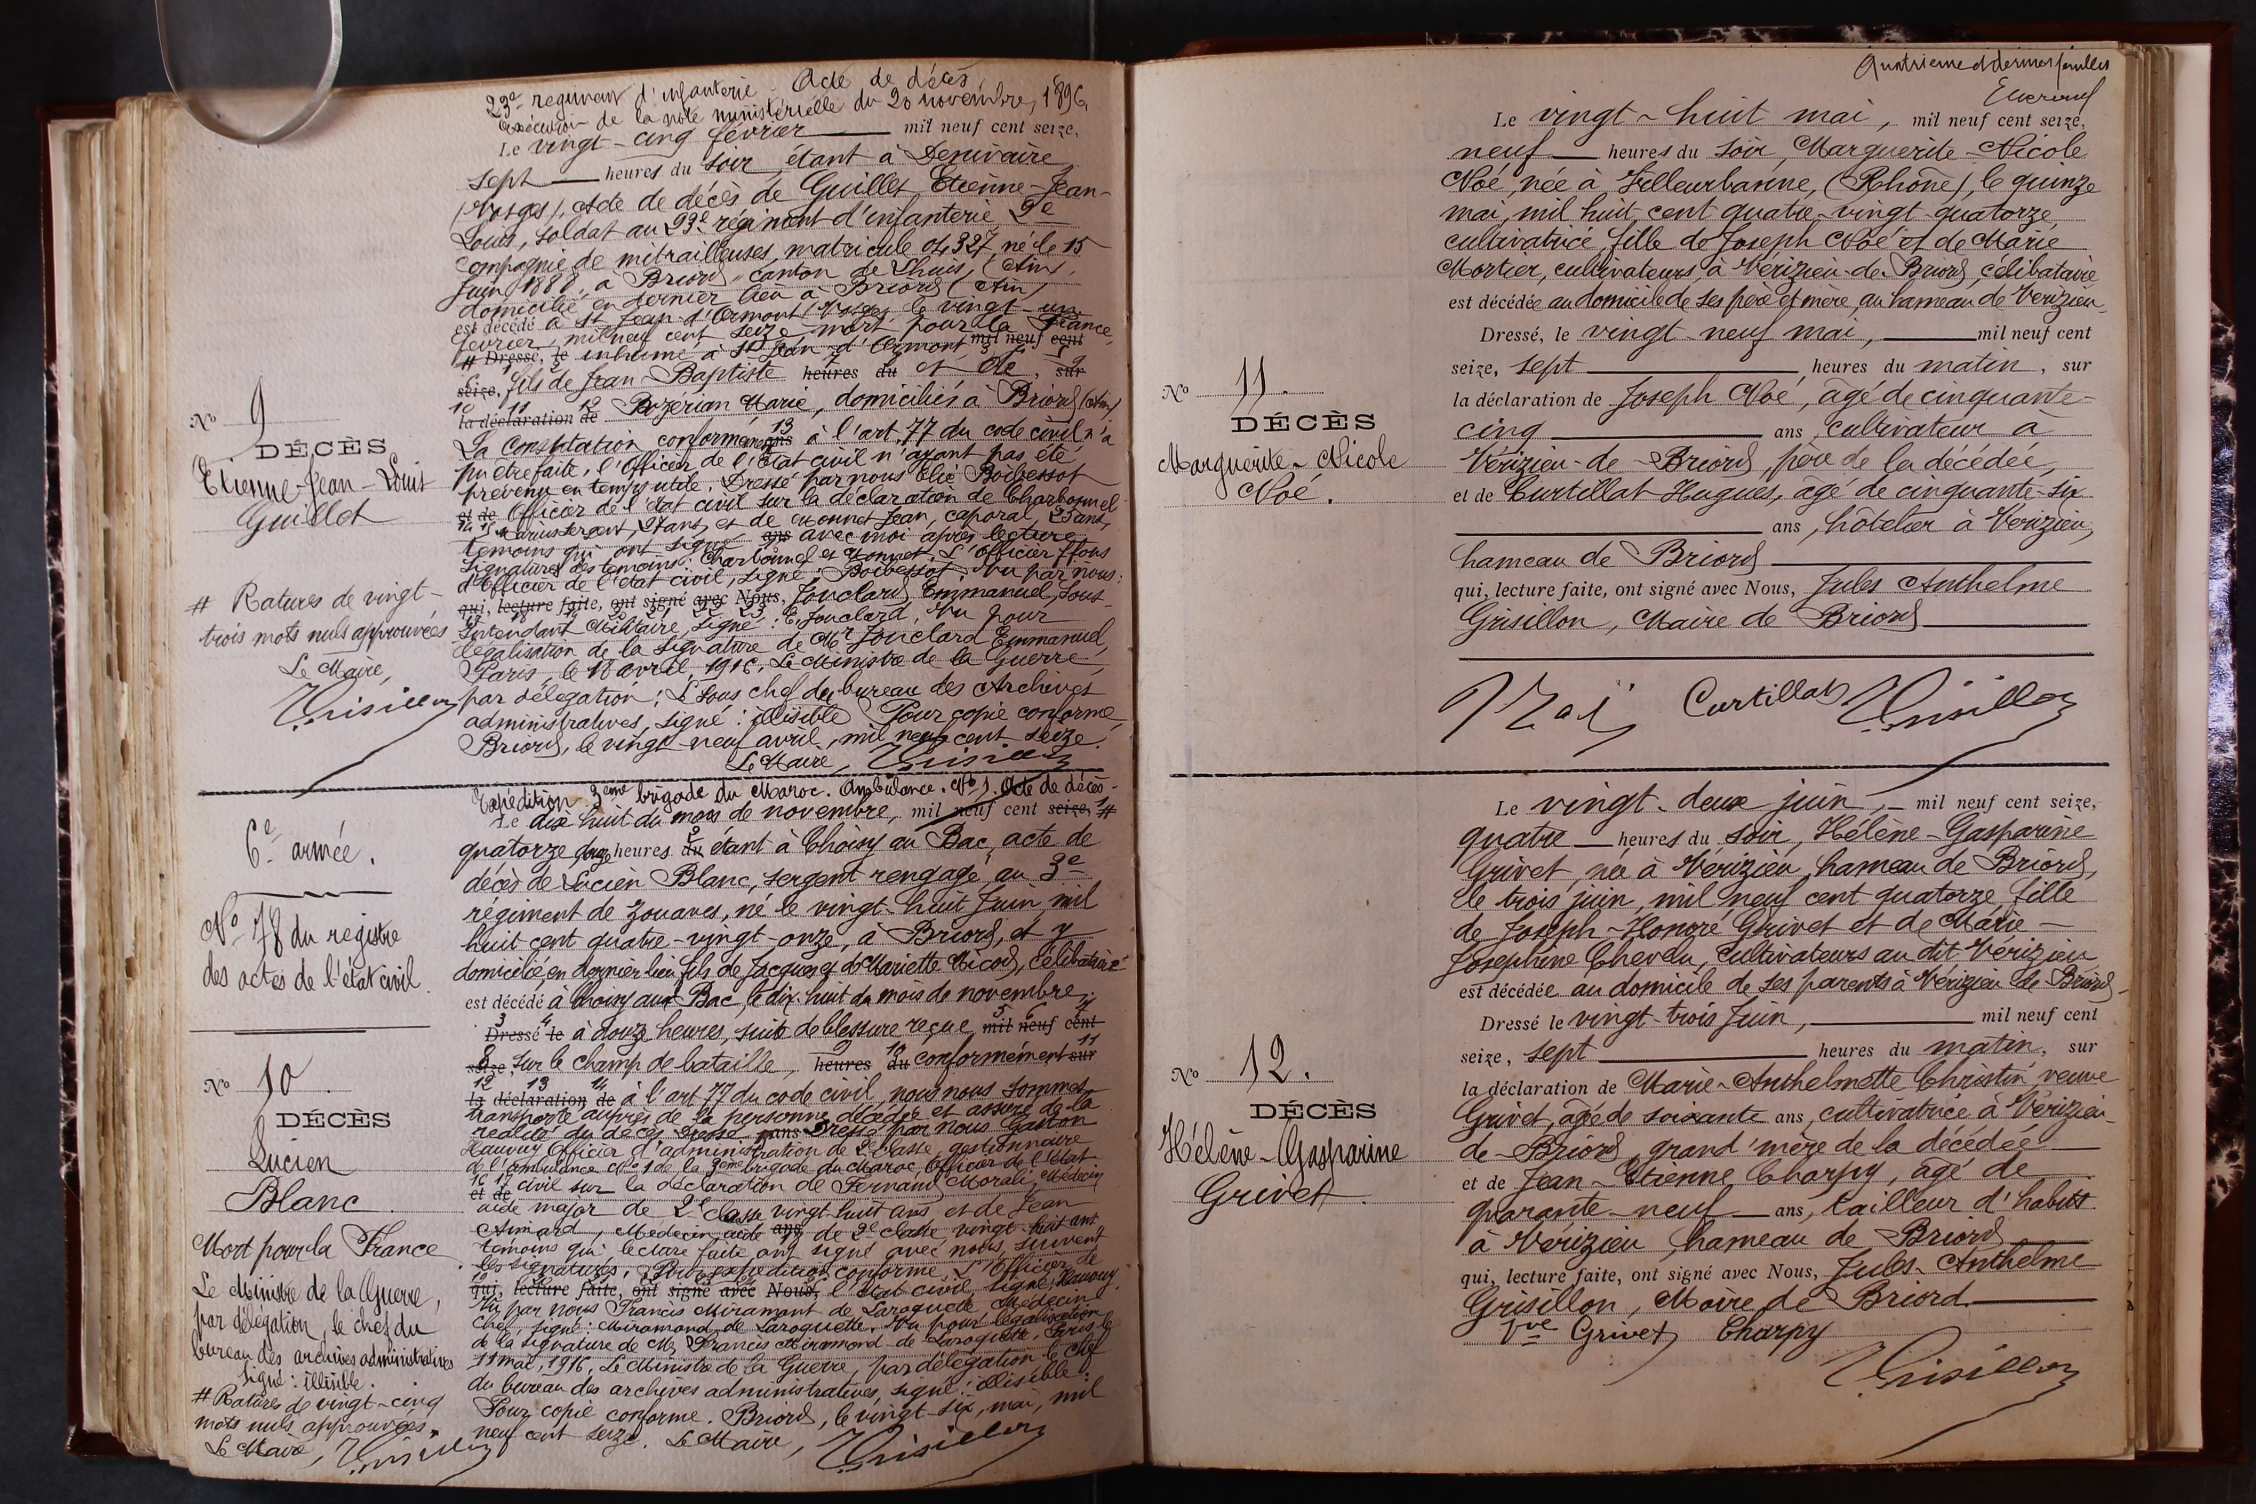 23e régiment d'infanterie. Acte de décès
exécution de la note ministérielle du 20 novembre, 1896,
Le vingt-cinq février mil neuf cent seize,
sept heures du soir étant à Denivaire
(Vosges), Acte de décès de Guillet Etienne-Jean-
Louis, soldat au 23e régiment d'infanterie 9e
Compagnie de mitrailleuses, matricule 04327, né le 15
Juin 1888, à Briord, canton de Lhuis, (Ain),
domicilié en dernier lieu à Briord (Ain)
est décédé à St Jean-d'Ormont (Vosges) le vingt-un
février, mil neuf cent seize, mort pour la France,
# Dressé, le inhumé à St Jean-d'Ormont, mil neuf cent
seize, fils de Jean-Baptiste heures du et de, sur
la déclaration de Bozérian Marie, domiciliés à Briord (Ain)
La Constatation, conformément ans à l'art. 77 du code civil n'a
pu être faite, l'Officier de l'état civil n'ayant pas été
prévenu en temps utile. Dressé par nous Elie Boibessot
et de Officier de l'état civil sur la déclaration de Charbonnel
Marius sergent, 27 ans, et de Monnet Jean, caporal, 23 ans,
témoins qui ont signé ans avec moi après lecture
Signatures des témoins : Charbonnel et Monnet. L'Officier ffons
d'Officier de l'état civil, signé : Boibessot. Vu par nous :
qui, lecture faite, ont signé avec Nous, Jouclard Emmanuel, Sous-
Intendant Militaire, signé : E. Jouclard, Vu pour
légalisation de la signature de Mr Jouclard Emmanuel,
Paris, le 18 avril, 1916, Le Ministre de la Guerre,
par délégation : Le sous chef du bureau des Archives
administratives, signé : illisible Pour copie conforme,
Briord, le vingt-neuf avril, mil neuf cent seize.
Le Maire, Grisillon
No 9
DÉCÈS
Etienne-Jean-Louis
Guillet
# Ratures de vingt-
trois mots nuls approuvées
Le Maire,
Grisillon
Expédition. 3ème brigade du Maroc. Ambulance. No 1. Acte de décès.
Le dix huit du mois de novembre, mil neuf cent seize, #
quatorze douze heures du étant à Choisy au Bac, acte de
décès de Lucien Blanc, sergent rengagé au 3e
régiment de Zouaves, né le vingt-huit Juin mil
huit cent quatre-vingt-onze, à Briord, et y
domicilié en dernier lieu fils de Jacques et de Mariette Nicod, célibataire
est décédé à Choisy aux Bac, le dix huit du mois de novembre,
Dressé le à douze heures, suite de blessure reçue mil neuf cent
seize, sur le champ de bataille, heures du conformément sur
la déclaration de à l'art 77 du code civil, nous nous sommes
transporté auprès de la personne décédée et assuré de la
réalité du décès Dressé ans Dressé par nous Gaston
Hauvuy Officier d'administration de 2e Classe, gestionnaire
de l'ambulance No 1 de la 3ème brigade du Maroc, Officier de l'état
et de civil sur la déclaration de Fernand Morali, Médecin
aide major de 2e classe vingt-huit ans et de Jean
Aimard, Médecin aide ans de 2e classe, vingt-huit ans
témoins qui lecture faite ont signé avec nous, suivent
les signatures. Pour expédition conforme, L'Officier de
qui, lecture faite, ont signé avec Nous, l'état civil, signé Hauvuy
Vu par nous Francis Miramont de Laroquette Médecin
Chef signé : Miramond de Laroquette. Vu pour légalisation
de la signature de Mr Francis Miramond de Laroquette, Paris, le
11 mai, 1916, Le Ministre de la Guerre, par délégation le chef
du bureau des archives administratives, signé : illisible :
Pour copie conforme. Briord, le vingt-six, mai, mil
neuf cent seize. Le Maire, Grisillon
6e armée.
No 78 du registre
des actes de l'état civil.
No 10
DÉCÈS
Lucien
Blanc
Mort pour la France
Le Ministre de la Guerre,
par délégation, le chef du
bureau des archives administratives
signé : illisible.
# Ratures de vingt-cinq
mots nuls approuvées.
Le Maire, Grisillon
Quatrième et dernier feuillet
Le vingt-huit mai, mil neuf cent seize,
neuf heures du soir, Marguerite-Nicole
Noé, née à Villeurbanne, (Rhône), le quinze
mai, mil huit cent quatre-vingt-quatorze
cultivatrice, fille de Joseph Noé et de Marie
Mortier, cultivateurs, à Vérizieu-de-Briord, célibataire
est décédée au domicile de ses père et mère, au hameau de Verizieu
Dressé, le vingt-neuf mai, mil neuf cent
seize, sept heures du matin, sur
la déclaration de Joseph Noé, âgé de cinquante-
cinq ans, cultivateur à
Vérizieu-de-Briord, père de la décédée,
et de Curtillat Hugues, âgé de cinquante-six
ans, hôtelier à Verizieu,
hameau de Briord
qui, lecture faite, ont signé avec Nous, Jules Anthelme
Grisillon, Maire de Briord
Noé Curtillat Grisillon
No 11.
DÉCÈS
Marguerite-Nicole
Noé.
Le vingt-deux juin, mil neuf cent seize,
quatre heures du soir, Hélène-Gasparine
Grivet, née à Vérizieu, hameau de Briord,
le trois juin, mil neuf cent quatorze, fille
de Joseph-Honoré Grivet et de Marie-
Joséphine Chevdu, cultivateurs au dit Vérizieu
est décédée au domicile de ses parents à Vérizieu de Briord
Dressé le vingt-trois Juin, mil neuf cent
seize, sept heures du matin, sur
la déclaration de Marie-Anthelmette Christin veuve
Grivet, âgée de soixante ans, cultivatrice à Vérizieu-
de-Briord, grand'mère de la décédée
et de Jean-Etienne Charpy, âgé de
quarante-neuf ans, tailleur d'habits
à Verizieu, hameau de Briord
qui, lecture faite, ont signé avec Nous, Jules-Anthelme
Grisillon, Maire de Briord
Vve Grivet Charpy
Grisillon
No 12.
DÉCÈS
Hélène-Gasparine
Grivet.